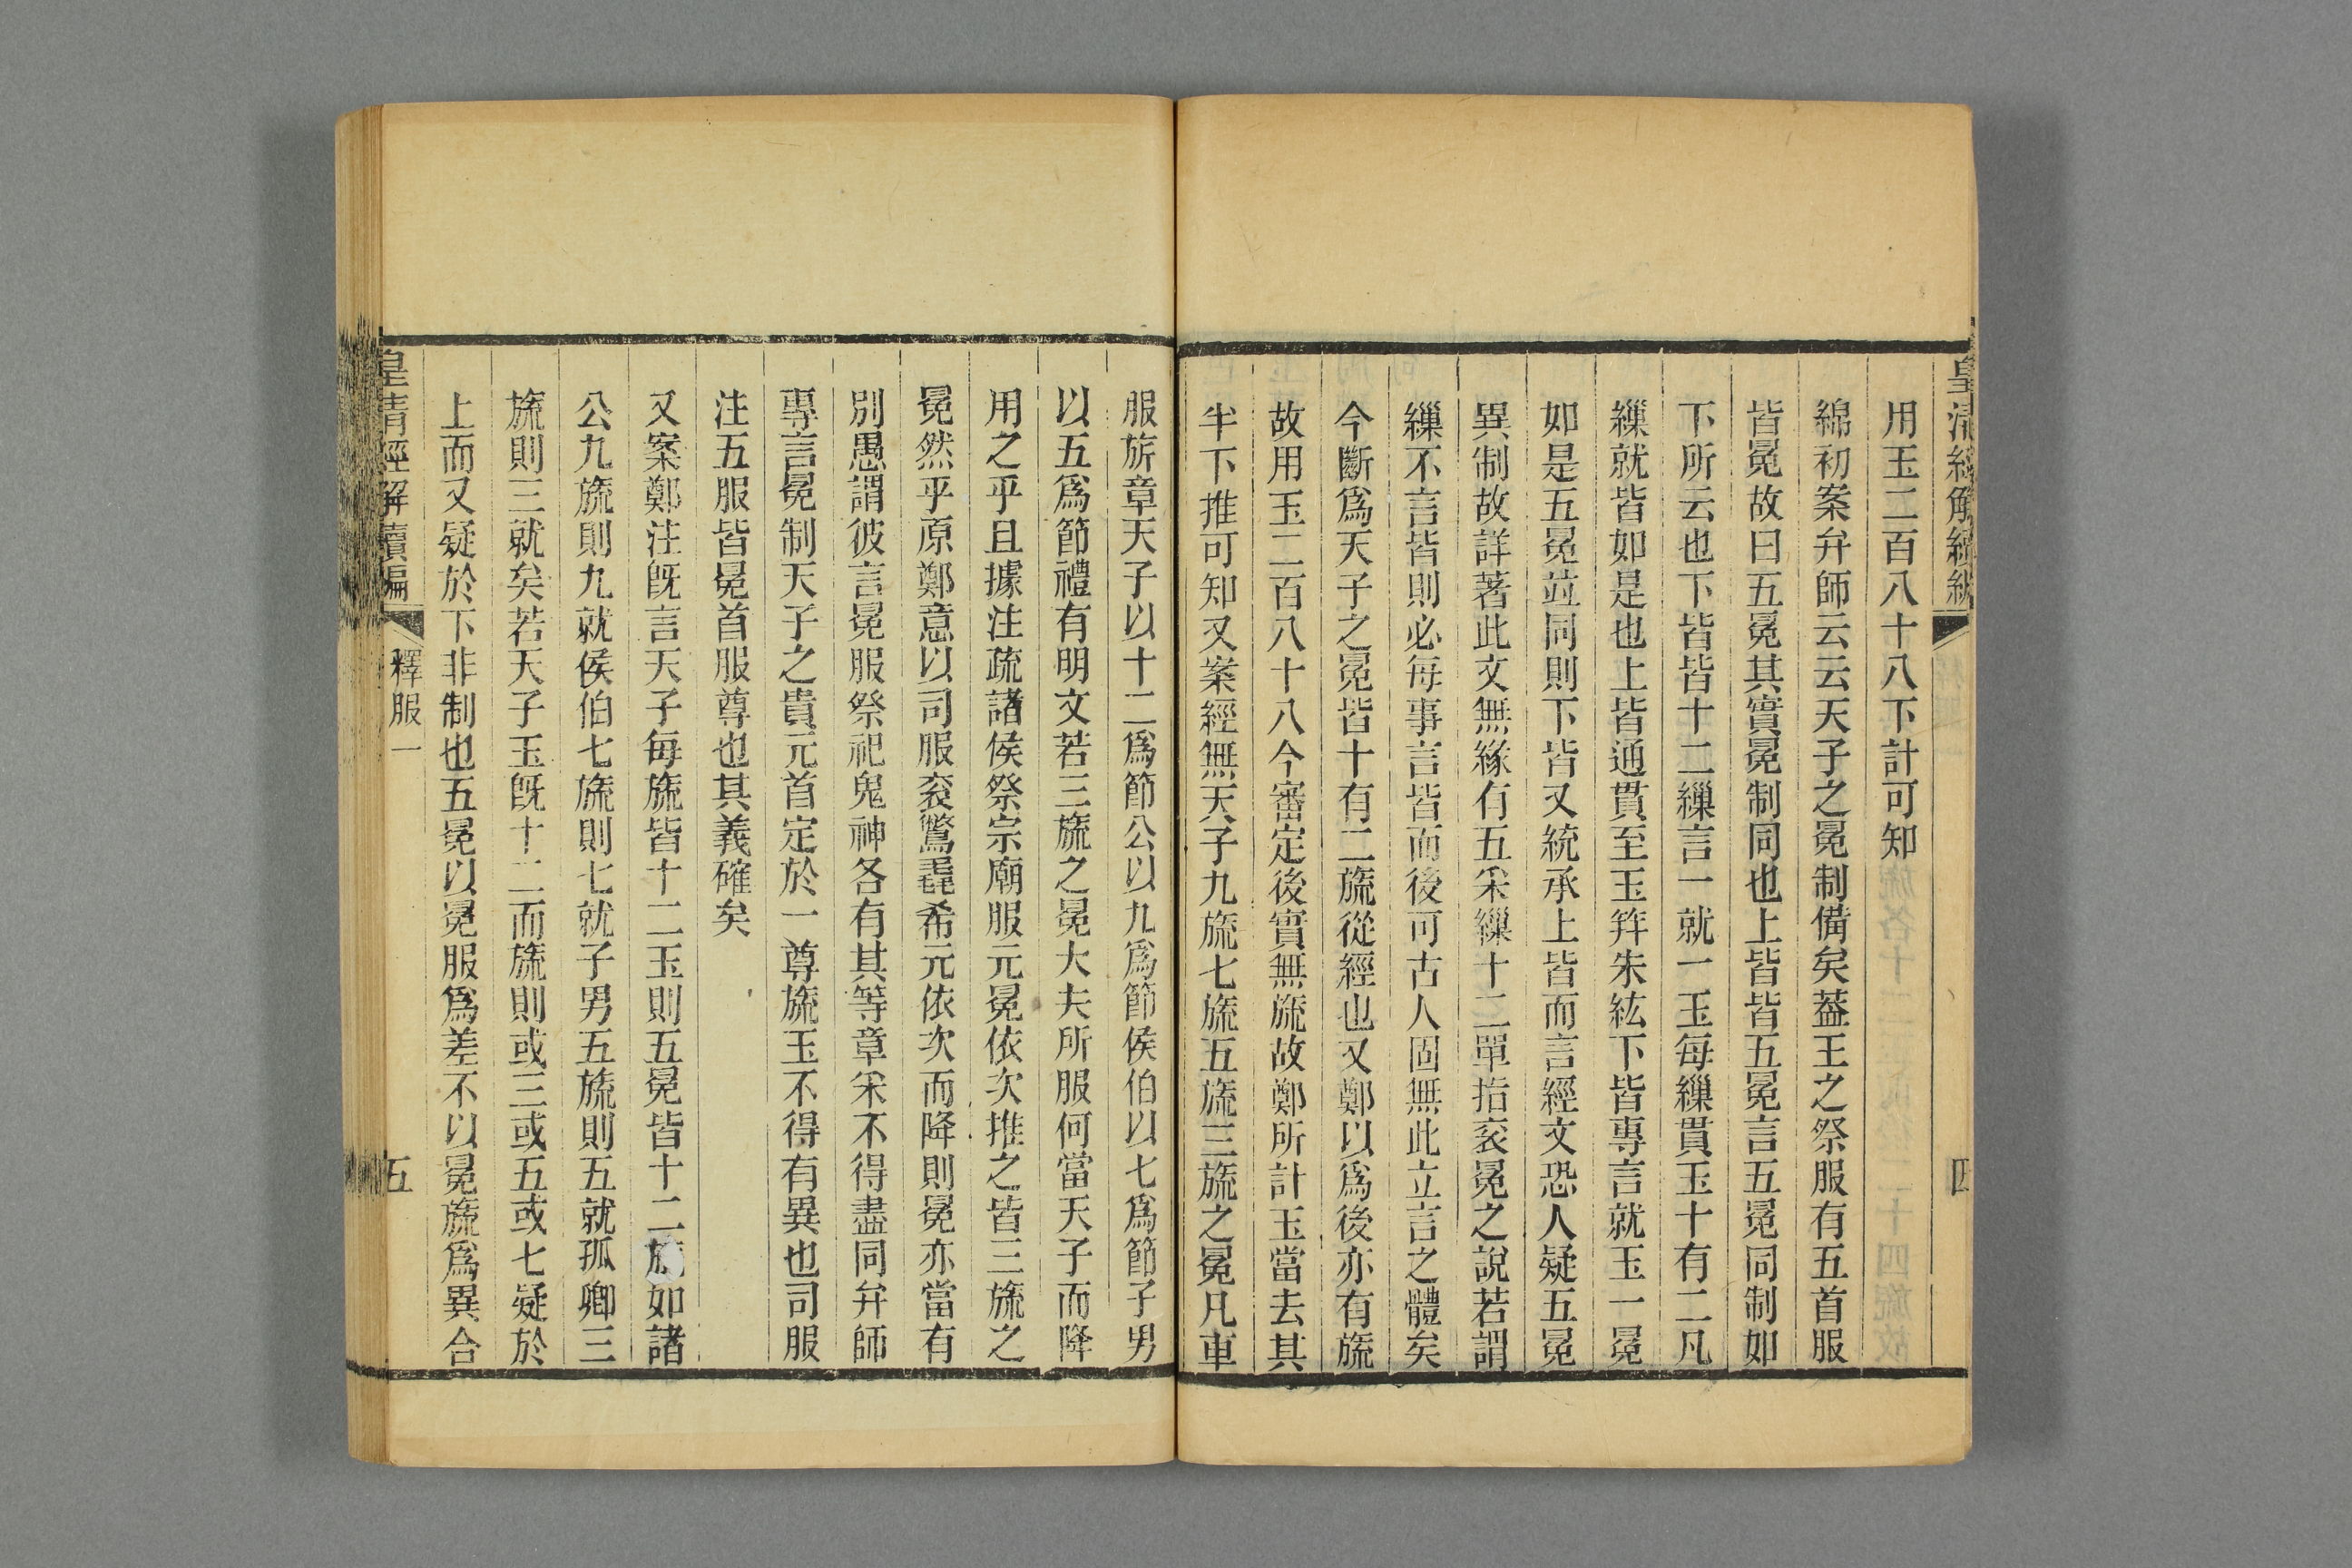 皇清經解續編
四
用玉二百八十八下計可知
綿初案弁師云云天子之冕制備矣葢王之祭服有五首服
皆冕故曰五冕其實冕制同也上皆皆五冕言五冕同制如
下所云也下皆皆十二繅言一就一玉每繅貫玉十有二凡
繅就皆如是也上皆通貫至玉笄朱紘下皆專言就玉一冕
如是五冕竝同則下皆又統承上皆而言經文恐人疑五冕
異制故詳著此文無緣有五采繅十二單指衮冕之說若謂
繅不言皆則必每事言皆而後可古人固無此立言之體矣
今斷爲天子之冕皆十有二旒從經也又鄭以爲後亦有旒
故用玉二百八十八今審定後實無旒故鄭所計玉當去其
半下推可知又案經無天子九旒七旒五旒三旒之冕凡車
服旂章天子以十二爲節公以九爲節侯伯以七爲節子男
以五爲節禮有明文若三旒之冕大夫所服何當天子而降
用之乎且據注疏諸侯祭宗廟服元冕依次推之皆三旒之
冕然乎原鄭意以司服衮鷩毳希元依次而降則冕亦當有
別愚謂彼言冕服祭祀鬼神各有其等章采不得盡同弁師
專言冕制天子之貴元首定於一尊旒玉不得有異也司服
注五服皆冕首服尊也其義確矣
又案鄭注旣言天子每旒皆十二玉則五冕皆十二旒如諸
公九旒則九就侯伯七旒則七就子男五旒則五就孤卿三
旒則三就矣若天子玉旣十二而旒則或三或五或七疑於
上而又疑於下非制也五冕以冕服爲差不以冕旒爲異合
皇淸經解續編
釋服一
五